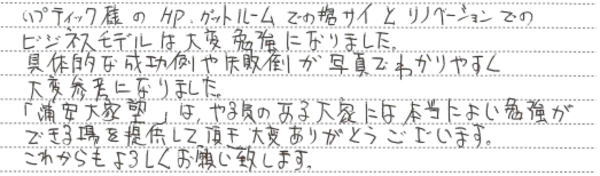 ブティック様のHP.グットルームでの招サイとリノベーションでの
ビジネスモデルは大変勉強になりました。
具体的な成功例や失敗例が写真でわかりやすく
大変参考になりました。
「浦安大家塾」は、やる気のある大家には本当によい勉強が
できる場を提供して頂き大変ありがとうございます。
これからもよろしくお願い致します。